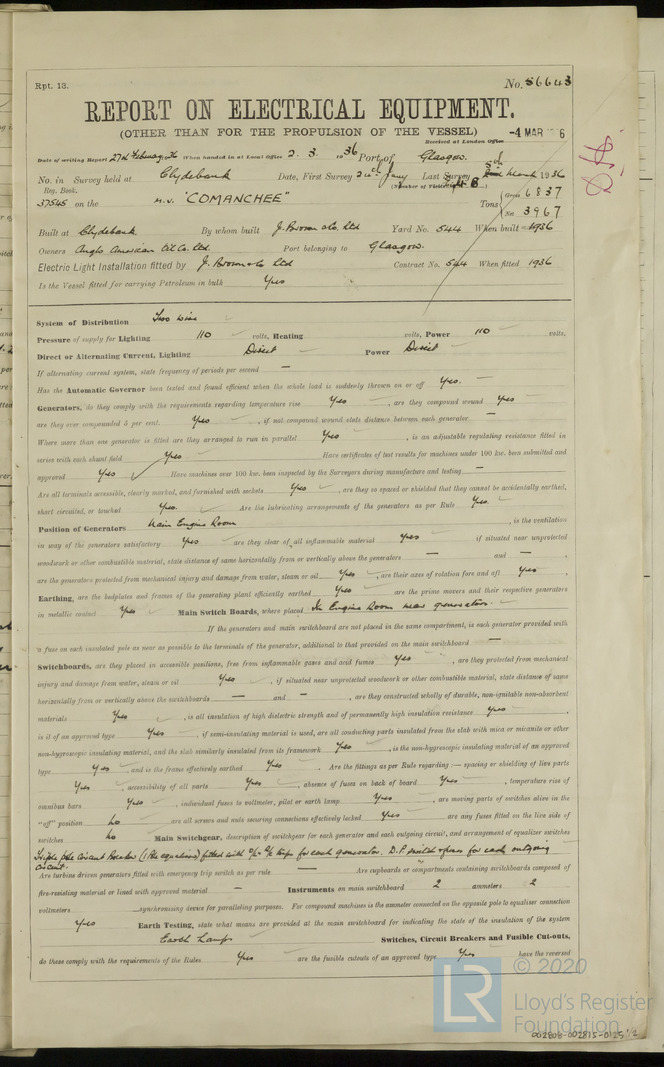 Rpt. 13.
No. 56643
REPORT ON ELECTRICAL EQUIPMENT.
(OTHER THAN FOR THE PROPULSION OF THE VESSEL)
Received at London Office
-4 MAR 6
Date of writing Report 27th February 1936 When handed in at Local Office 2. 3. 1936 Port of Glasgow.
No. in Survey held at Clydebank Date, First Survey Jany Last Survey March 1936
Reg. Book. (Number of Visits 8
37545 on the M.V. "COMANCHEE" Tons Gross 6837
Net 3967
Built at Clydebank By whom built J. Brown & Co. Ltd Yard No. 544 When built 1936
Owners Anglo American Oil Co. Ltd Port belonging to Glasgow.
Electric Light Installation fitted by J. Brown & Co Ltd Contract No. 544 When fitted 1936
Is the Vessel fitted for carrying Petroleum in bulk Yes
System of Distribution Two wire
Pressure of supply for Lighting 110 volts, Heating volts, Power 110 volts.
Direct or Alternating Current, Lighting Direct Power Direct
If alternating current system, state frequency of periods per second —
Has the Automatic Governor been tested and found efficient when the whole load is suddenly thrown on or off Yes.
Generators, do they comply with the requirements regarding temperature rise Yes, are they compound wound Yes
are they over compounded 5 per cent. Yes, if not compound wound state distance between each generator —
Where more than one generator is fitted are they arranged to run in parallel Yes, is an adjustable regulating resistance fitted in
series with each shunt field Yes Have certificates of test results for machines under 100 kw. been submitted and
approved Yes Have machines over 100 kw. been inspected by the Surveyors during manufacture and testing —
Are all terminals accessible, clearly marked, and furnished with sockets Yes, are they so spaced or shielded that they cannot be accidentally earthed,
short circuited, or touched Yes. Are the lubricating arrangements of the generators as per Rule Yes.
Position of Generators Main Engine Room, is the ventilation
in way of the generators satisfactory Yes are they clear of all inflammable material Yes if situated near unprotected
woodwork or other combustible material, state distance of same horizontally from or vertically above the generators — and —,
are the generators protected from mechanical injury and damage from water, steam or oil Yes, are their axes of rotation fore and aft Yes.
Earthing, are the bedplates and frames of the generating plant efficiently earthed Yes are the prime movers and their respective generators
in metallic contact Yes Main Switch Boards, where placed In Engine Room near generators.
If the generators and main switchboard are not placed in the same compartment, is each generator provided with
a fuse on each insulated pole as near as possible to the terminals of the generator, additional to that provided on the main switchboard —
Switchboards, are they placed in accessible positions, free from inflammable gases and acid fumes Yes, are they protected from mechanical
injury and damage from water, steam or oil Yes, if situated near unprotected woodwork or other combustible material, state distance of same
horizontally from or vertically above the switchboards — and —, are they constructed wholly of durable, non-ignitable non-absorbent
materials Yes, is all insulation of high dielectric strength and of permanently high insulation resistance Yes,
is it of an approved type Yes, if semi-insulating material is used, are all conducting parts insulated from the slab with mica or micanite or other
non-hygroscopic insulating material, and the slab similarly insulated from its framework Yes, is the non-hygroscopic insulating material of an approved
type Yes and is the frame effectively earthed Yes. Are the fittings as per Rule regarding :— spacing or shielding of live parts
Yes, accessibility of all parts Yes, absence of fuses on back of board Yes, temperature rise of
omnibus bars Yes, individual fuses to voltmeter, pilot or earth lamp Yes, are moving parts of switches alive in the
"off" position No are all screws and nuts securing connections effectively locked Yes are any fuses fitted on the live side of
switches No Main Switchgear, description of switchgear for each generator and each outgoing circuit, and arrangement of equaliser switches
Triple pole Circuit Breaker (1 Pole equaliser) fitted with O/L & R/C trips for each generator. D.P. switch & fuses for each outgoing
circuit.
Are turbine driven generators fitted with emergency trip switch as per rule — Are cupboards or compartments containing switchboards composed of
fire-resisting material or lined with approved material — Instruments on main switchboard 2 ammeters 2
voltmeters synchronising device for paralleling purposes. For compound machines is the ammeter connected on the opposite pole to equaliser connection
Yes Earth Testing, state what means are provided at the main switchboard for indicating the state of the insulation of the system
Earth Lamps Switches, Circuit Breakers and Fusible Cut-outs,
do these comply with the requirements of the Rules Yes are the fusible cutouts of an approved type Yes have the reversed
© 2020
LR
Lloyd's Register
Foundation
002808-002815-0125 1/2